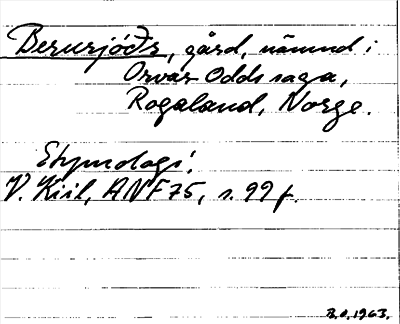 Berurjóðr, gård, nämnd i
Orvar Odds saga,
Rogaland, Norge.
Etymologi:
V. Kiil, ANF 75, s. 99 f.
B.O. 1963.